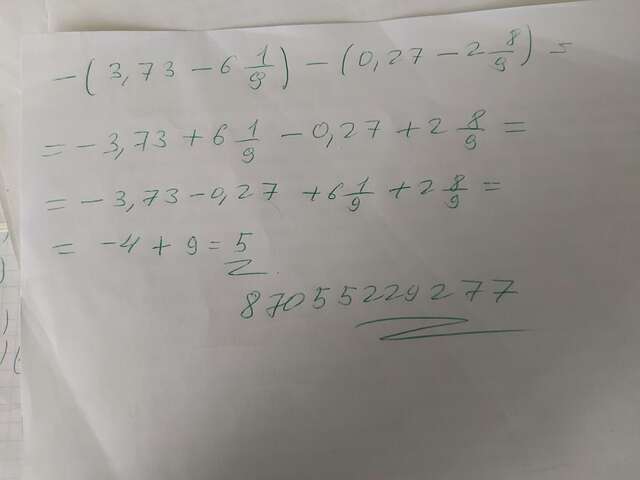 -(3,73 - 6 1/9) - (0,27 - 2 8/9) =
= -3,73 + 6 1/9 - 0,27 + 2 8/9 =
= -3,73 - 0,27 + 6 1/9 + 2 8/9 =
= -4 + 9 = 5
87055229277